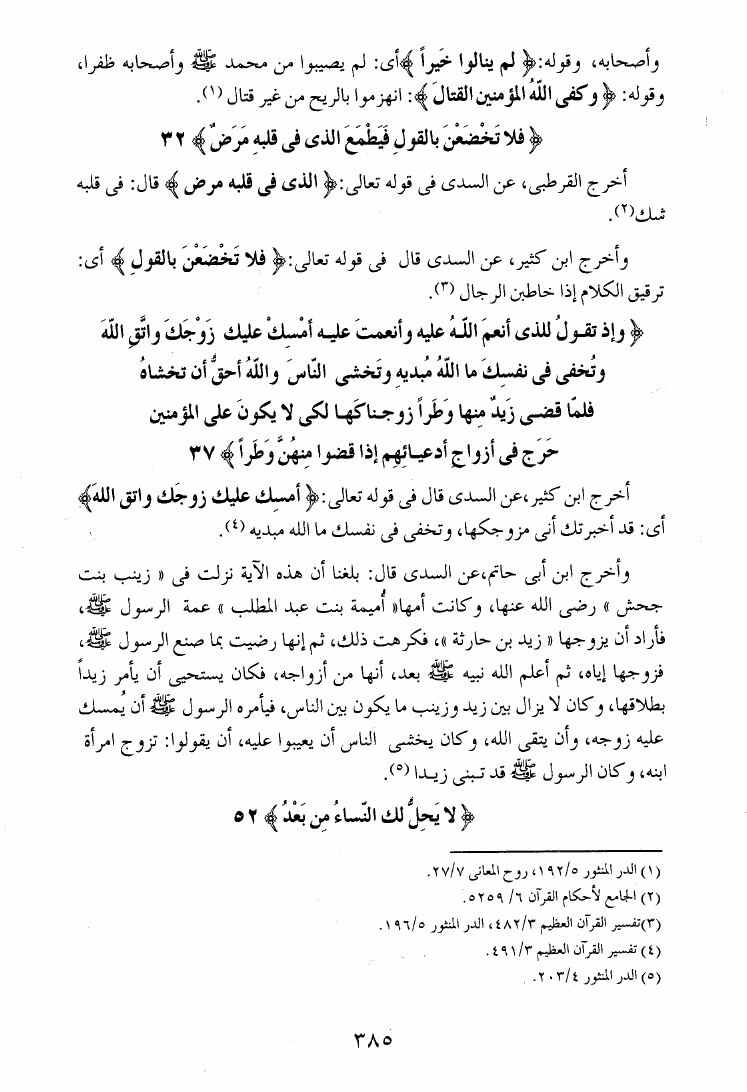 وأصحابه، وقوله:﴿ لم ينالوا خَيراً ﴾أى: لم يصيبوا من محمد ﷺ وأصحابه ظفرا،
وقوله: ﴿ وكفى اللَّهُ المؤمنين القتالَ ﴾: انهزموا بالريح من غير قتال (١).
﴿ فلا تَخْضَعْنَ بالقولِ فَيَطْمَعَ الذى فى قلبهِ مَرَضٌ ﴾ ٣٢
أخرج القرطبى، عن السدى فى قوله تعالى:﴿ الذى فى قلبه مرض ﴾ قال: فى قلبه
شك(٢).
وأخرج ابن كثير، عن السدى قال فى قوله تعالى:﴿ فلا تَخْضَعْنَ بالقولِ ﴾ أى:
ترقيق الكلام إذا خاطبن الرجال (٣).
﴿ وإذ تقـولُ للذى أنعمَ اللَّـهُ عليه وأنعمتَ عليـه أمْسِكْ عليك زَوْجَكَ واتَّقِ اللَّهَ
وتُخفى فى نفسكَ ما اللَّهُ مُبديهِ وتَخشى النّاسَ واللَّهُ أحقُّ أن تخشاهُ
فلمّا قضـى زَيدٌ منها وَطَراً زوجـناكَهـا لكى لا يكونَ على المؤمنين
حَرَج فى أزواجِ أدعيـائهِم إذا قضَوا مِنهُنَّ وَطَراً ﴾ ٣٧
أخرج ابن كثير،عن السدى قال فى قوله تعالى:﴿ أمسِك عليك زوجَك واتق اللهَ﴾
أى: قد أخبرتك أنى مزوجكها، وتخفى فى نفسك ما الله مبديه (٤).
وأخرج ابن أبى حاتم،عن السدى قال: بلغنا أن هذه الآية نزلت فى « زينب بنت
جحش » رضى الله عنها، وكانت أمها« أُميمة بنت عبد المطلب » عمة الرسول ﷺ،
فأراد أن يزوجها « زيد بن حارثة »، فكرهت ذلك، ثم إنها رضيت بما صنع الرسول ﷺ،
فزوجها إياه، ثم أعلم الله نبيه ﷺ بعد، أنها من أزواجه، فكان يستحيى أن يأمر زيداً
بطلاقها، وكان لا يزال بين زيد وزينب ما يكون بين الناس، فيأمره الرسول ﷺ أن يُمسك
عليه زوجه، وأن يتقى الله، وكان يخشى الناس أن يعيبوا عليه، أن يقولوا: تزوج امرأة
ابنه، وكان الرسول ﷺ قد تـبنى زيـدا (٥).
﴿ لا يَحِلُّ لك النّساءُ مِن بَعْدُ ﴾ ٥٢
(١) الدر المنثور ١٩٢/٥، روح المعانى ٢٧/٧.
(٢) الجامع لأحكام القرآن ٦/ ٥٢٥٩.
(٣)تفسير القرآن العظيم ٤٨٢/٣، الدر المنثور ١٩٦/٥.
(٤) تفسير القرآن العظيم ٤٩١/٣.
(٥) الدر المنثور ٢٠٣/٤.
٣٨٥